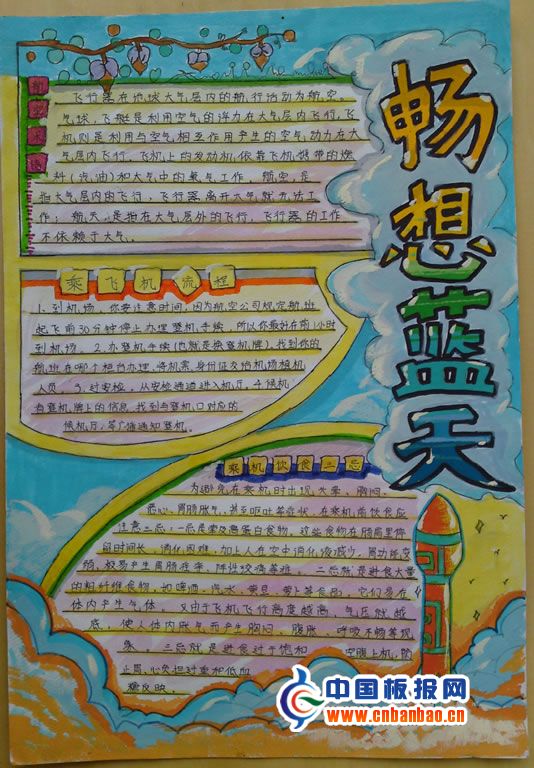 畅想蓝天
航空术语
飞行器在地球大气层内的航行活动为航空。
气球、飞艇是利用空气的浮力在大气层内飞行，飞
机则是利用与空气相互作用产生的空气动力在大
气层内飞行。飞机上的发动机依靠飞机携带的燃
料（汽油）和大气中的氧气工作。航空，是
指大气层内的飞行，飞行器离开大气就无法工
作；航天，是指在大气层外的飞行，飞行器的工作
不依赖于大气。
乘飞机流程
1.到机场。你要注意时间，因为航空公司规定航班
起飞前30分钟停止办理登机手续，所以你最好在前1小时
到机场。2.办登机手续（也就是换登机牌），找到你的
航班在哪个柜台办理，将机票、身份证交给机场值机
人员。3.过安检，从安检通道进入机厅。4.候机
看登机牌上的信息，找到与登机口对应的
候机厅，等广播通知登机。
乘机饮食三忌
为避免在乘机时出现头晕、胸闷、
恶心、胃肠胀气，甚至呕吐等症状，在乘机前饮食应
注意三忌：一忌是荤及高蛋白食物。这些食物在肠胃里停
留时间长，消化困难，加上人在空中消化液减少，胃动延变
弱，极易产生胃肠胀痛、阵性绞痛等症。二忌就是进食大量
的粗纤维食物，如啤酒、汽水、黄豆、萝卜等食品，它们易在
体内产生气体。又由于飞机飞行高度越高，气压就越
底，使人体内胀气而产生胸闷、腹胀、呼吸不畅等现
象。三忌就是进食对于饱和 空腹上机，防
止胃、心负担过重和低血
糖反映。
中国板报网
www.cnbanbao.cn